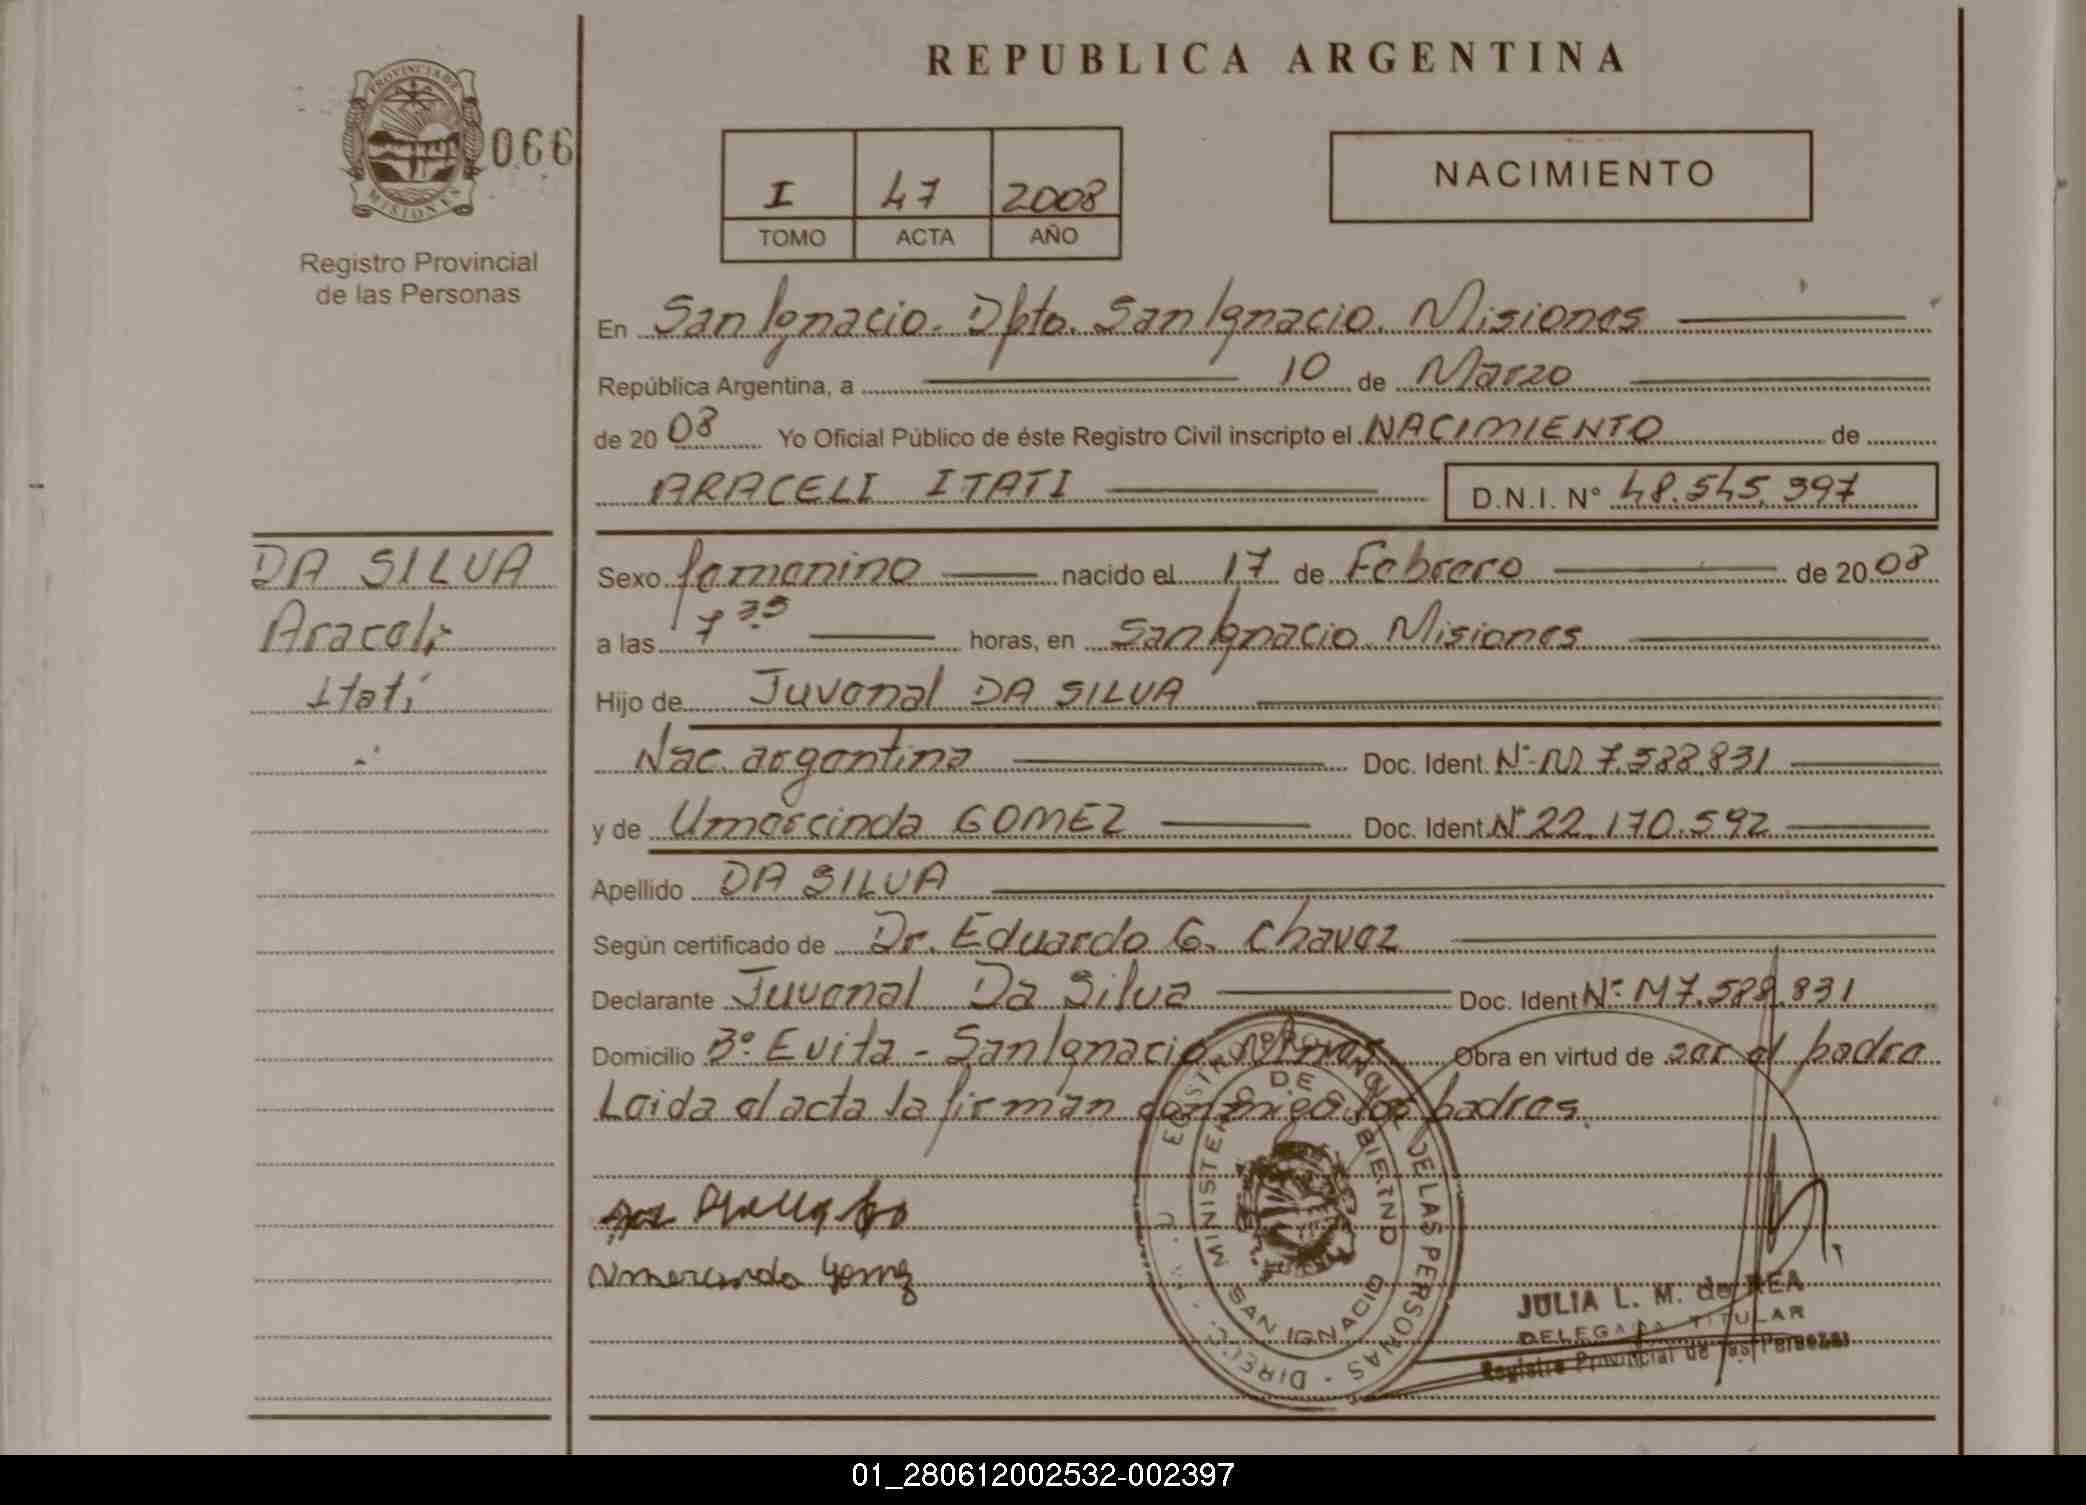 REPUBLICA ARGENTINA
PROVINCIA DE
MISIONES
066
Registro Provincial
de las Personas
I 47 2008
TOMO ACTA AÑO
NACIMIENTO
En San Ignacio. Dpto. San Ignacio. Misiones
República Argentina, a 10 de Marzo
de 2008 Yo Oficial Público de éste Registro Civil inscripto el NACIMIENTO de
ARACELI ITATI D.N.I. N° 48.545.397
DA SILVA
Araceli
Itatí
Sexo femenino nacido el 17 de Febrero de 2008
a las 7 35 horas, en San Ignacio Misiones
Hijo de Juvenal DA SILVA
Nac. argentina Doc. Ident. N° M 7.588.831
y de Umercinda GOMEZ Doc. Ident. N° 22.170.592
Apellido DA SILVA
Según certificado de Dr. Eduardo G. Chavez
Declarante Juvenal Da Silva Doc. Ident N° M7.588.831
Domicilio B° Evita - San Ignacio Obra en virtud de ser el padre
Leida el acta la firman conmigo los padres.
Gomez
REGISTRO PROVINCIAL DE LAS PERSONAS - DIRECC.
MINISTERIO DE GOBIERNO
SAN IGNACIO
JULIA L. M. de REA
DELEGADA TITULAR
Registro Provincial de las Personas
01_280612002532-002397